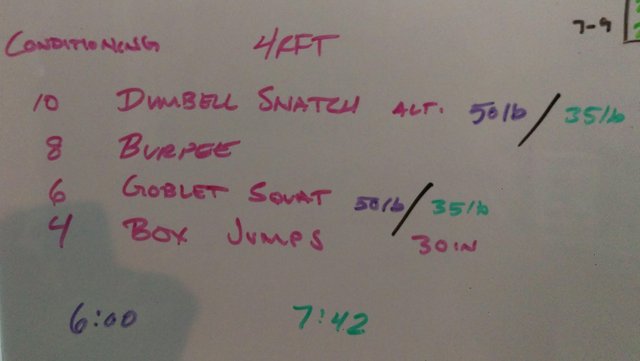 CONDITIONING 4RFT
7-9
10 DUMBELL SNATCH ALT. 50lb / 35lb
8 BURPEE
6 GOBLET SQUAT 50lb / 35lb
4 BOX JUMPS 30IN
6:00 7:42